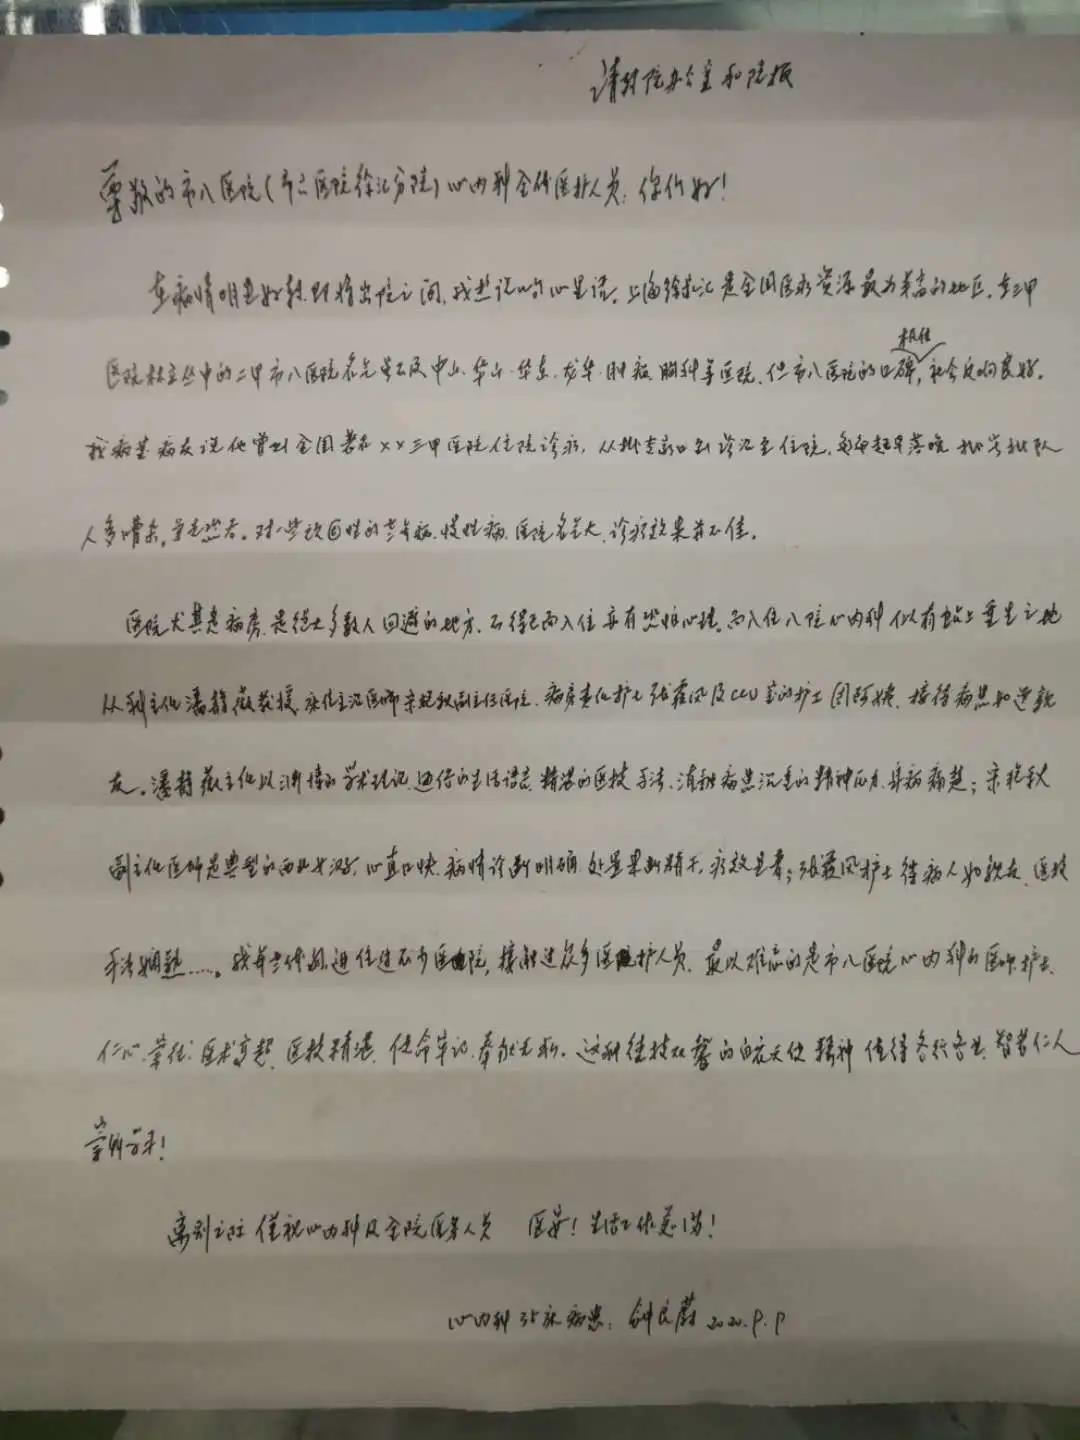 请转院办公室和院报
尊敬的市八医院(市六医院徐汇分院)心内科全体医护人员:你们好!
在病情明显好转即将出院之间,我想说的心里话。上海徐汇是全国医疗资源最为丰富的地区,在三甲
医院林立丛中的二甲市八医院名气虽不及中山、华山、华东、龙华、肿瘤、胸科等医院,但市八医院的口碑极佳,社会反响良好。
我病室病友说他曾到全国著名××三甲医院住院诊疗,从排专家门诊至住院,每每起早落晚排长队
人多嘈杂,对一些顽固性的老年病、慢性病,医院名气大,诊疗效果并不佳。
医院尤其是病房,是绝大多数人回避的地方,不得已而入住亦有恐惧心理。而入住八院心内科似有重生之地
从科主任潘静薇教授,床位主治医师宋艳秋副主任医师,病房责任护士张霞凤及CCU室的护士团阿姨,接待病患如逢亲
友。潘静薇主任以渊博的学术理论,通俗的生活语言,精湛的医技手法,消融病患沉重的精神压力、身病痛楚;宋艳秋
副主任医师是典型的西北女汉子,心直口快,病情诊断明确,处置果断精干,疗效显著;张霞凤护士待病人如亲友,医技
手法娴熟……。我年老体弱,进住过不少医院,接触过众多医院护人员,最以难忘的是市八医院心内科的医师、护士、
仁心、医术高超、医技精湛、使命牢记、奉献无私。这种德技双馨的白衣天使精神值得各行各业、智者仁人
崇尚学习!
离别之际谨祝心内科及全院医务人员 医安!生活工作愉悦!
心内科35床病患:钟良蔚 2020.9.9